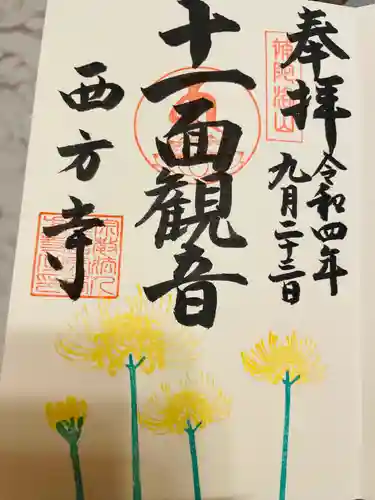 奉拝
令和四年
九月二十三日
十一面観音
西方寺